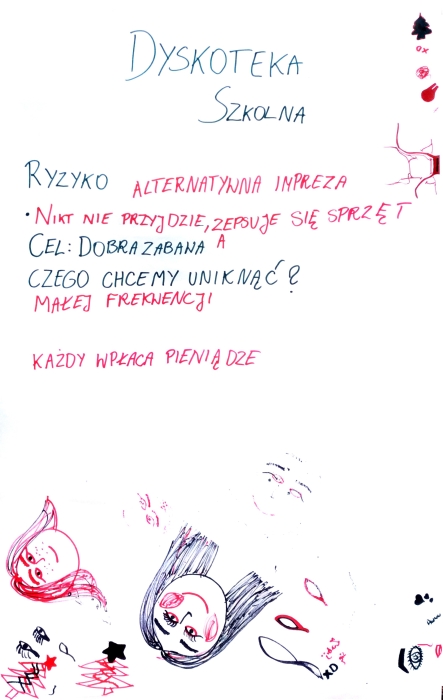 DYSKOTEKA
SZKOLNA
RYZYKO ALTERNATYWNA IMPREZA
• NIKT NIE PRZYJDZIE, ZEPSUJE SIĘ SPRZĘT
CEL: DOBRA ZABAWA A
CZEGO CHCEMY UNIKNĄĆ?
MAŁEJ FREKWENCJI
KAŻDY WPŁACA PIENIĄDZE
XD